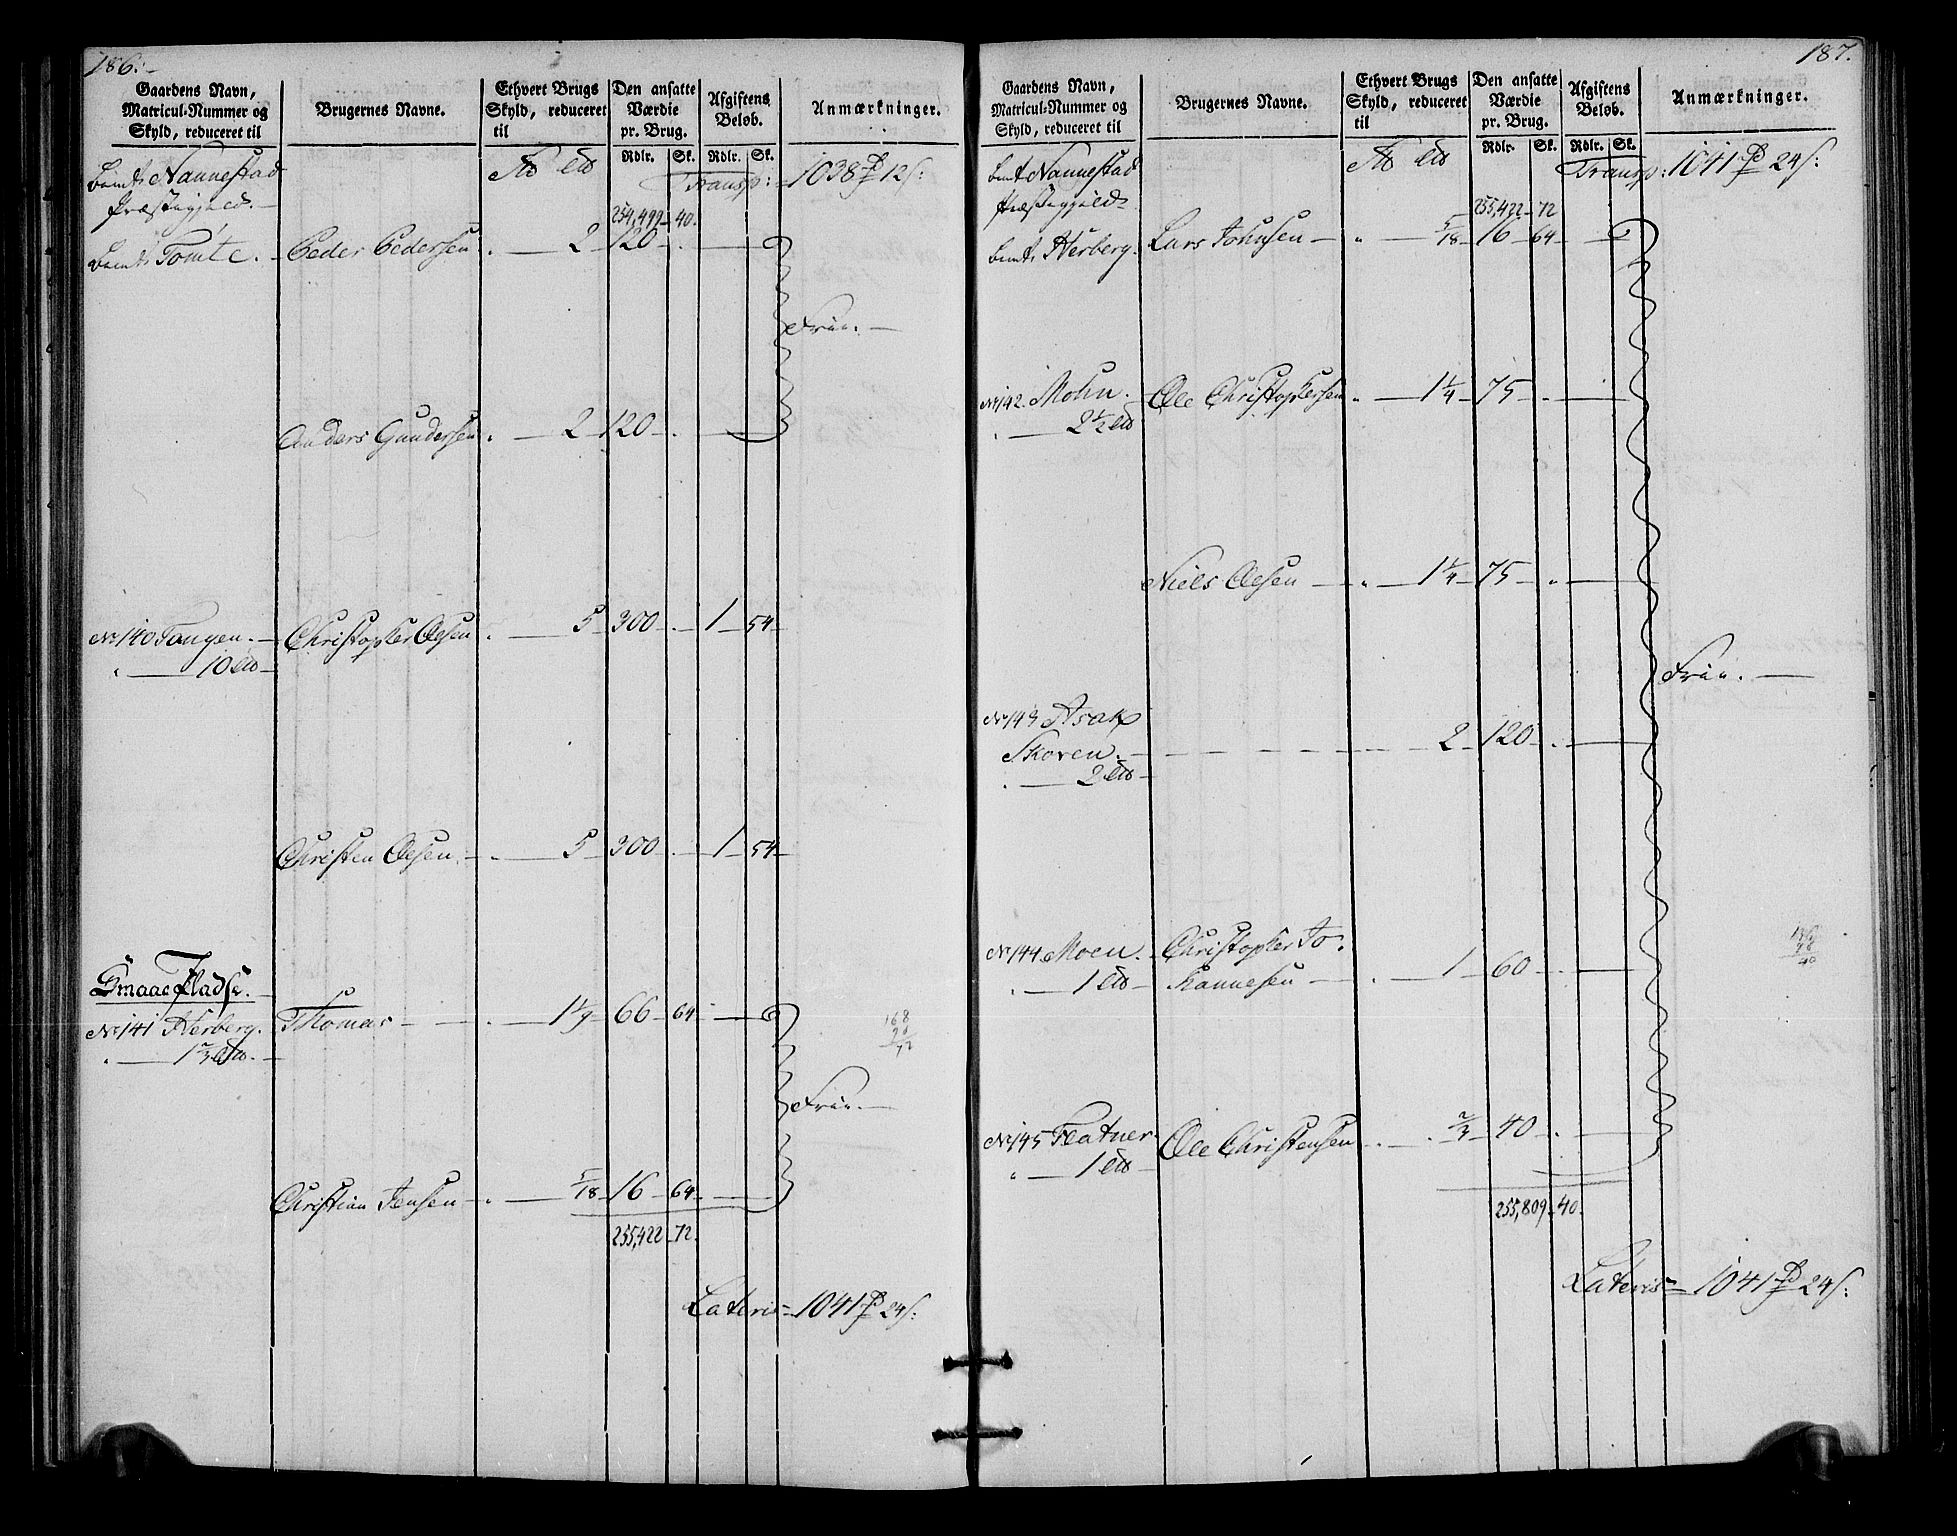 186.
Gaardens Navn,
Matricul-Nummer og
Skyld, reduceret til
Brugernes Navne.
Ethvert Brugs
Skyld, reduceret
til
Den ansatte
Værdie
pr. Brug.
Afgiftens
Beløb.
Anmærkninger.
Rdlr. Sk. Rdlr. Sk.
bemt Nannestad
Præstegjeld.
Transp: 1038 12 s:
254,499 40.
bemt Tomte. Peder Pedersen 2 120
Frie.
Anders Gundersen 2 120
No 140 Tangen. Christopher Olsen 5 300 1 54
10
Christen Olsen 5 300 1 54
Smaae Pladse.
No 141 Herberg. Thomas 1 1/9 66 64
1 2/3
168
96
72
Frie.
Christian Jensen 5/18 16 64
255,422 72.
Lateris 1041 24 s:
187.
Gaardens Navn,
Matricul-Nummer og
Skyld, reduceret til
Brugernes Navne.
Ethvert Brugs
Skyld, reduceret
til
Den ansatte
Værdie
pr. Brug.
Afgiftens
Beløb.
Anmærkninger.
Rdlr. Sk. Rdlr. Sk.
bemt Nannestad
Præstegjeld
Transp: 1041 24 s:
255,422 72
bemt Herberg. Lars Johnsen 5/18 16 64
No 142. Mohn. Ole Christophersen 1 1/4 75
2 1/2
Niels Olsen 1 1/4 75
Frie.
No 143 Asak
Skoven. 2 120
2
No 144 Moen. Christopher Jo-
1 hannesen 1 60
No 145 Flatner Ole Christensen 2/3 40
1
255,809 40.
Lateris 1041 24 s: